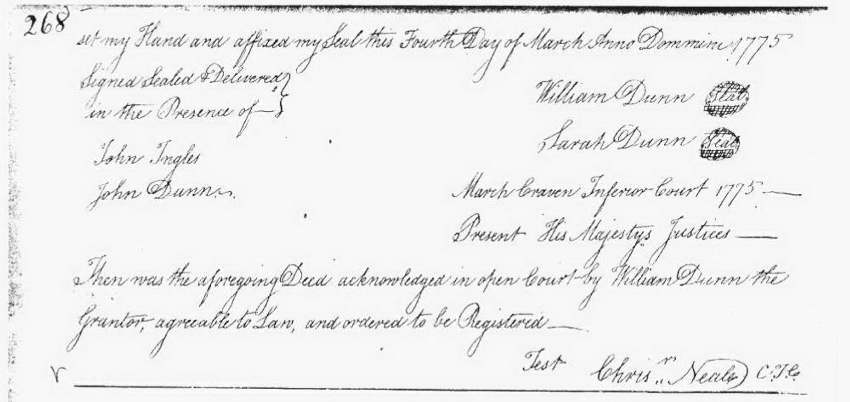 268
set my Hand and affixed my Seal this Fourth Day of March Anno Dommine 1775
Signed Sealed & Delivered
in the Presence of
William Dunn Seal
Sarah Dunn Seal
John Ingles
John Dunn
March Craven Inferior Court 1775
Present His Majestys Justices
Then was the aforegoing Deed acknowledged in open Court by William Dunn the
Grantor, agreeable to Law, and ordered to be Registered
Test Chrisr. Neale